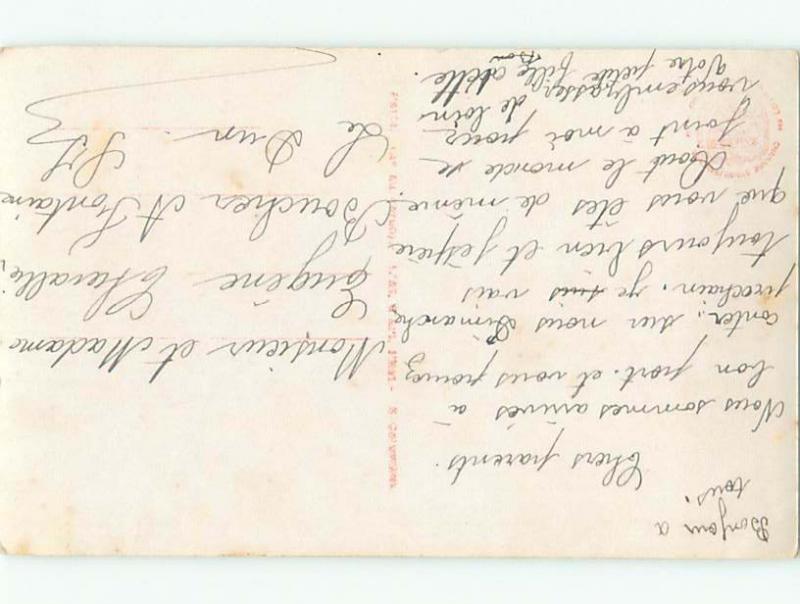 Bonjour a
tous.
Chers parents.
Nous sommes arrivés à
bon port. et vous pouvez
conter, sur nous Dimanche
prochain. je suis vais
toujours bien et j'espère
que vous êtes de même.
tout le monde se
joint à moi pour
vous embrasser de loin
Votre petite fille
Bon
Monsieur et Madame
Eugène Chevalie
Boucher A Fontaine
Le Dun.